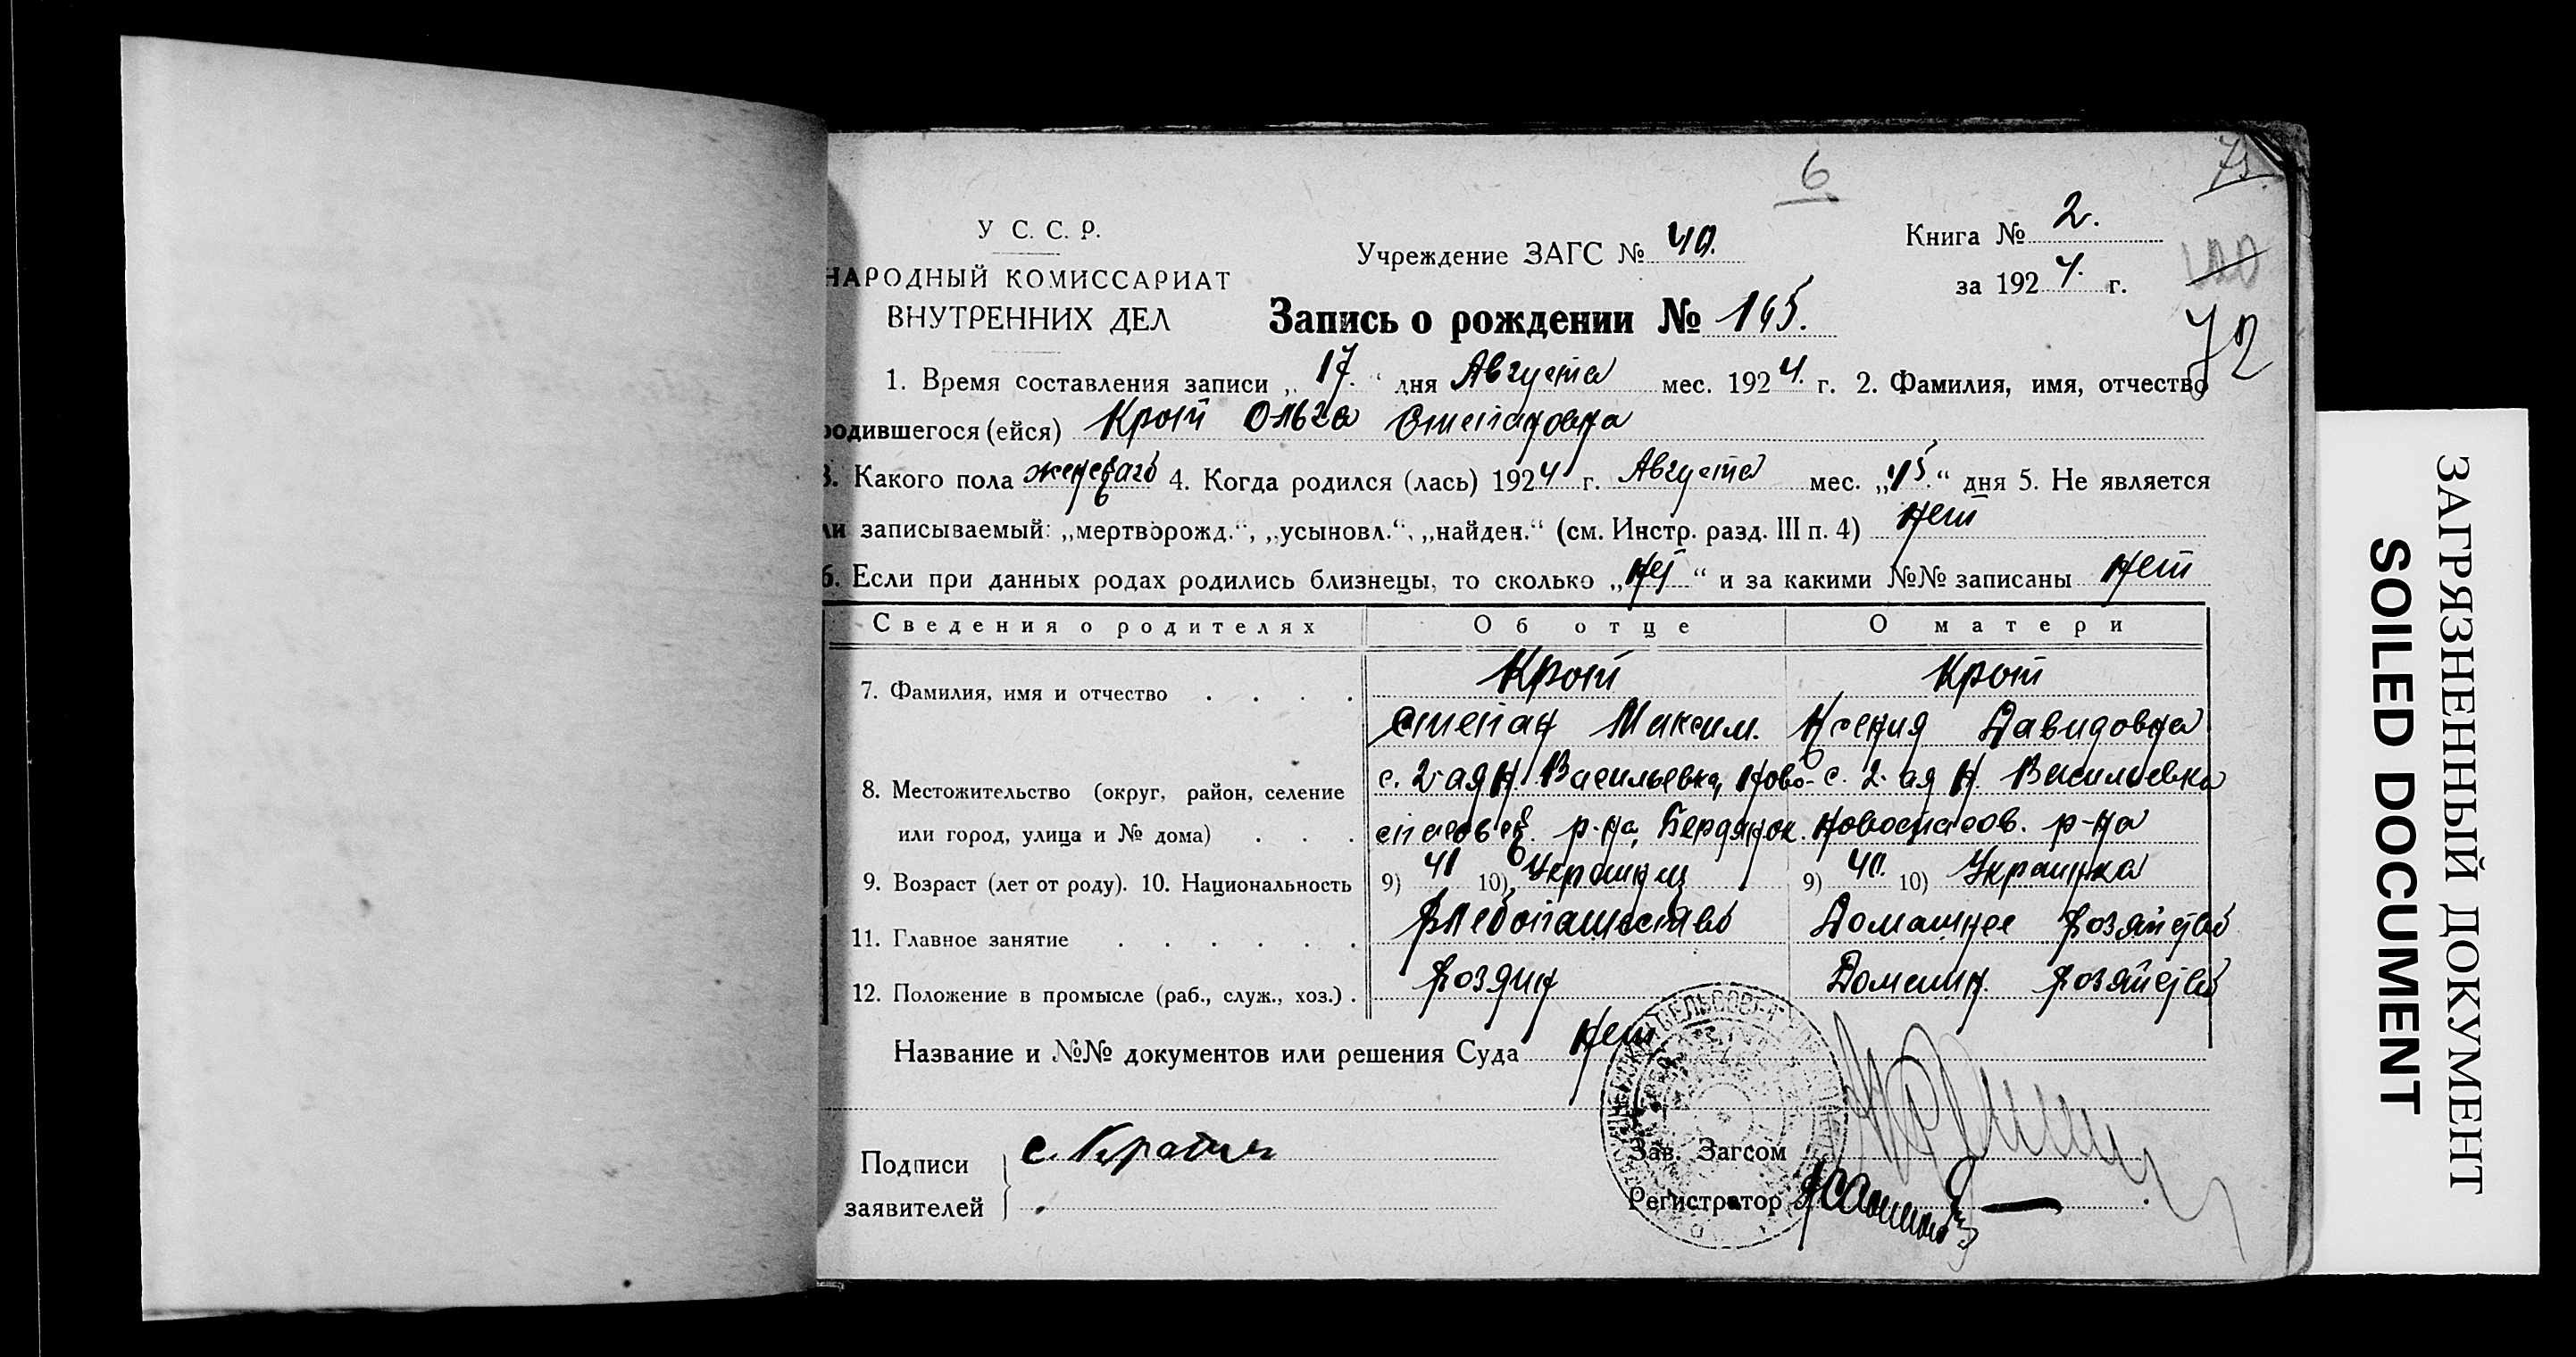 6
73
У С. С. Р.
НАРОДНЫЙ КОМИССАРИАТ
ВНУТРЕННИХ ДЕЛ
Учреждение ЗАГС № 40.
Книга № 2.
за 1924. г.
Запись о рождении № 145.
72
1. Время составления записи „17.“ дня Августа мес. 1924. г. 2. Фамилия, имя, отчество
родившегося (ейся) Крот Ольга Степановна
3. Какого пола женскаго 4. Когда родился (лась) 1924 г. Августа мес. „15.“ дня 5. Не является
ли записываемый: „мертворожд.“, „усыновл.“, „найден.“ (см. Инстр. разд. III п. 4) нет
6. Если при данных родах родились близнецы, то сколько „нет“ и за какими №№ записаны нет
Сведения о родителях Об отце О матери
7. Фамилия, имя и отчество . . . . Крот Крот
Степан Максим. Ксения Давидовна
8. Местожительство (округ, район, селение с. 2-ая Н. Васильевка, Ново- с. 2-ая Н. Васильевка
или город, улица и № дома) . . . спасовск. р-на, Бердянск. Новоспасов. р-на
9. Возраст (лет от роду). 10. Национальность 9) 41 10) Украинец 9) 40. 10) Украинка
11. Главное занятие . . . . . . хлебопашество Домашнее хозяйство
12. Положение в промысле (раб., служ., хоз.) . хозяин Домашн. хозяйство
Название и №№ документов или решения Суда нет
Подписи
заявителей
С. Кротин
Зав. Загсом
Регистратор
ЗАГРЯЗНЕННЫЙ ДОКУМЕНТ
SOILED DOCUMENT